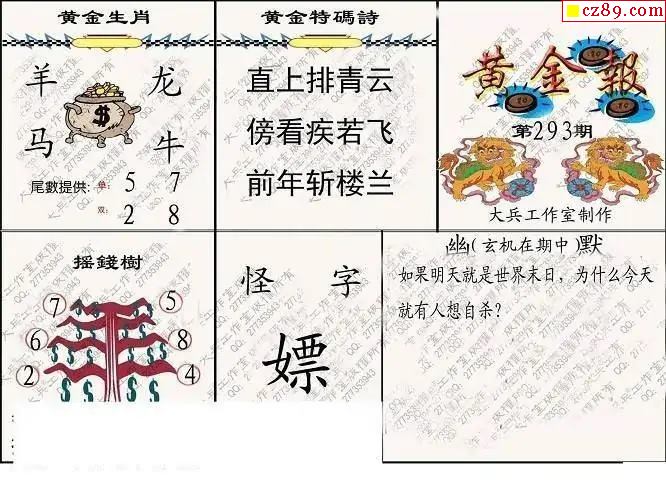 cz89.com
黄金生肖
羊 龙
马 牛
$
尾數提供: 单: 5 7
双: 2 8
黄金特碼詩
直上排青云
傍看疾若飞
前年斩楼兰
黄金報
第293期
大兵工作室制作
摇錢樹
7 5
6 8
2 4
怪 字
嫖
幽(玄机在期中)默
如果明天就是世界末日，为什么今天
就有人想自杀?